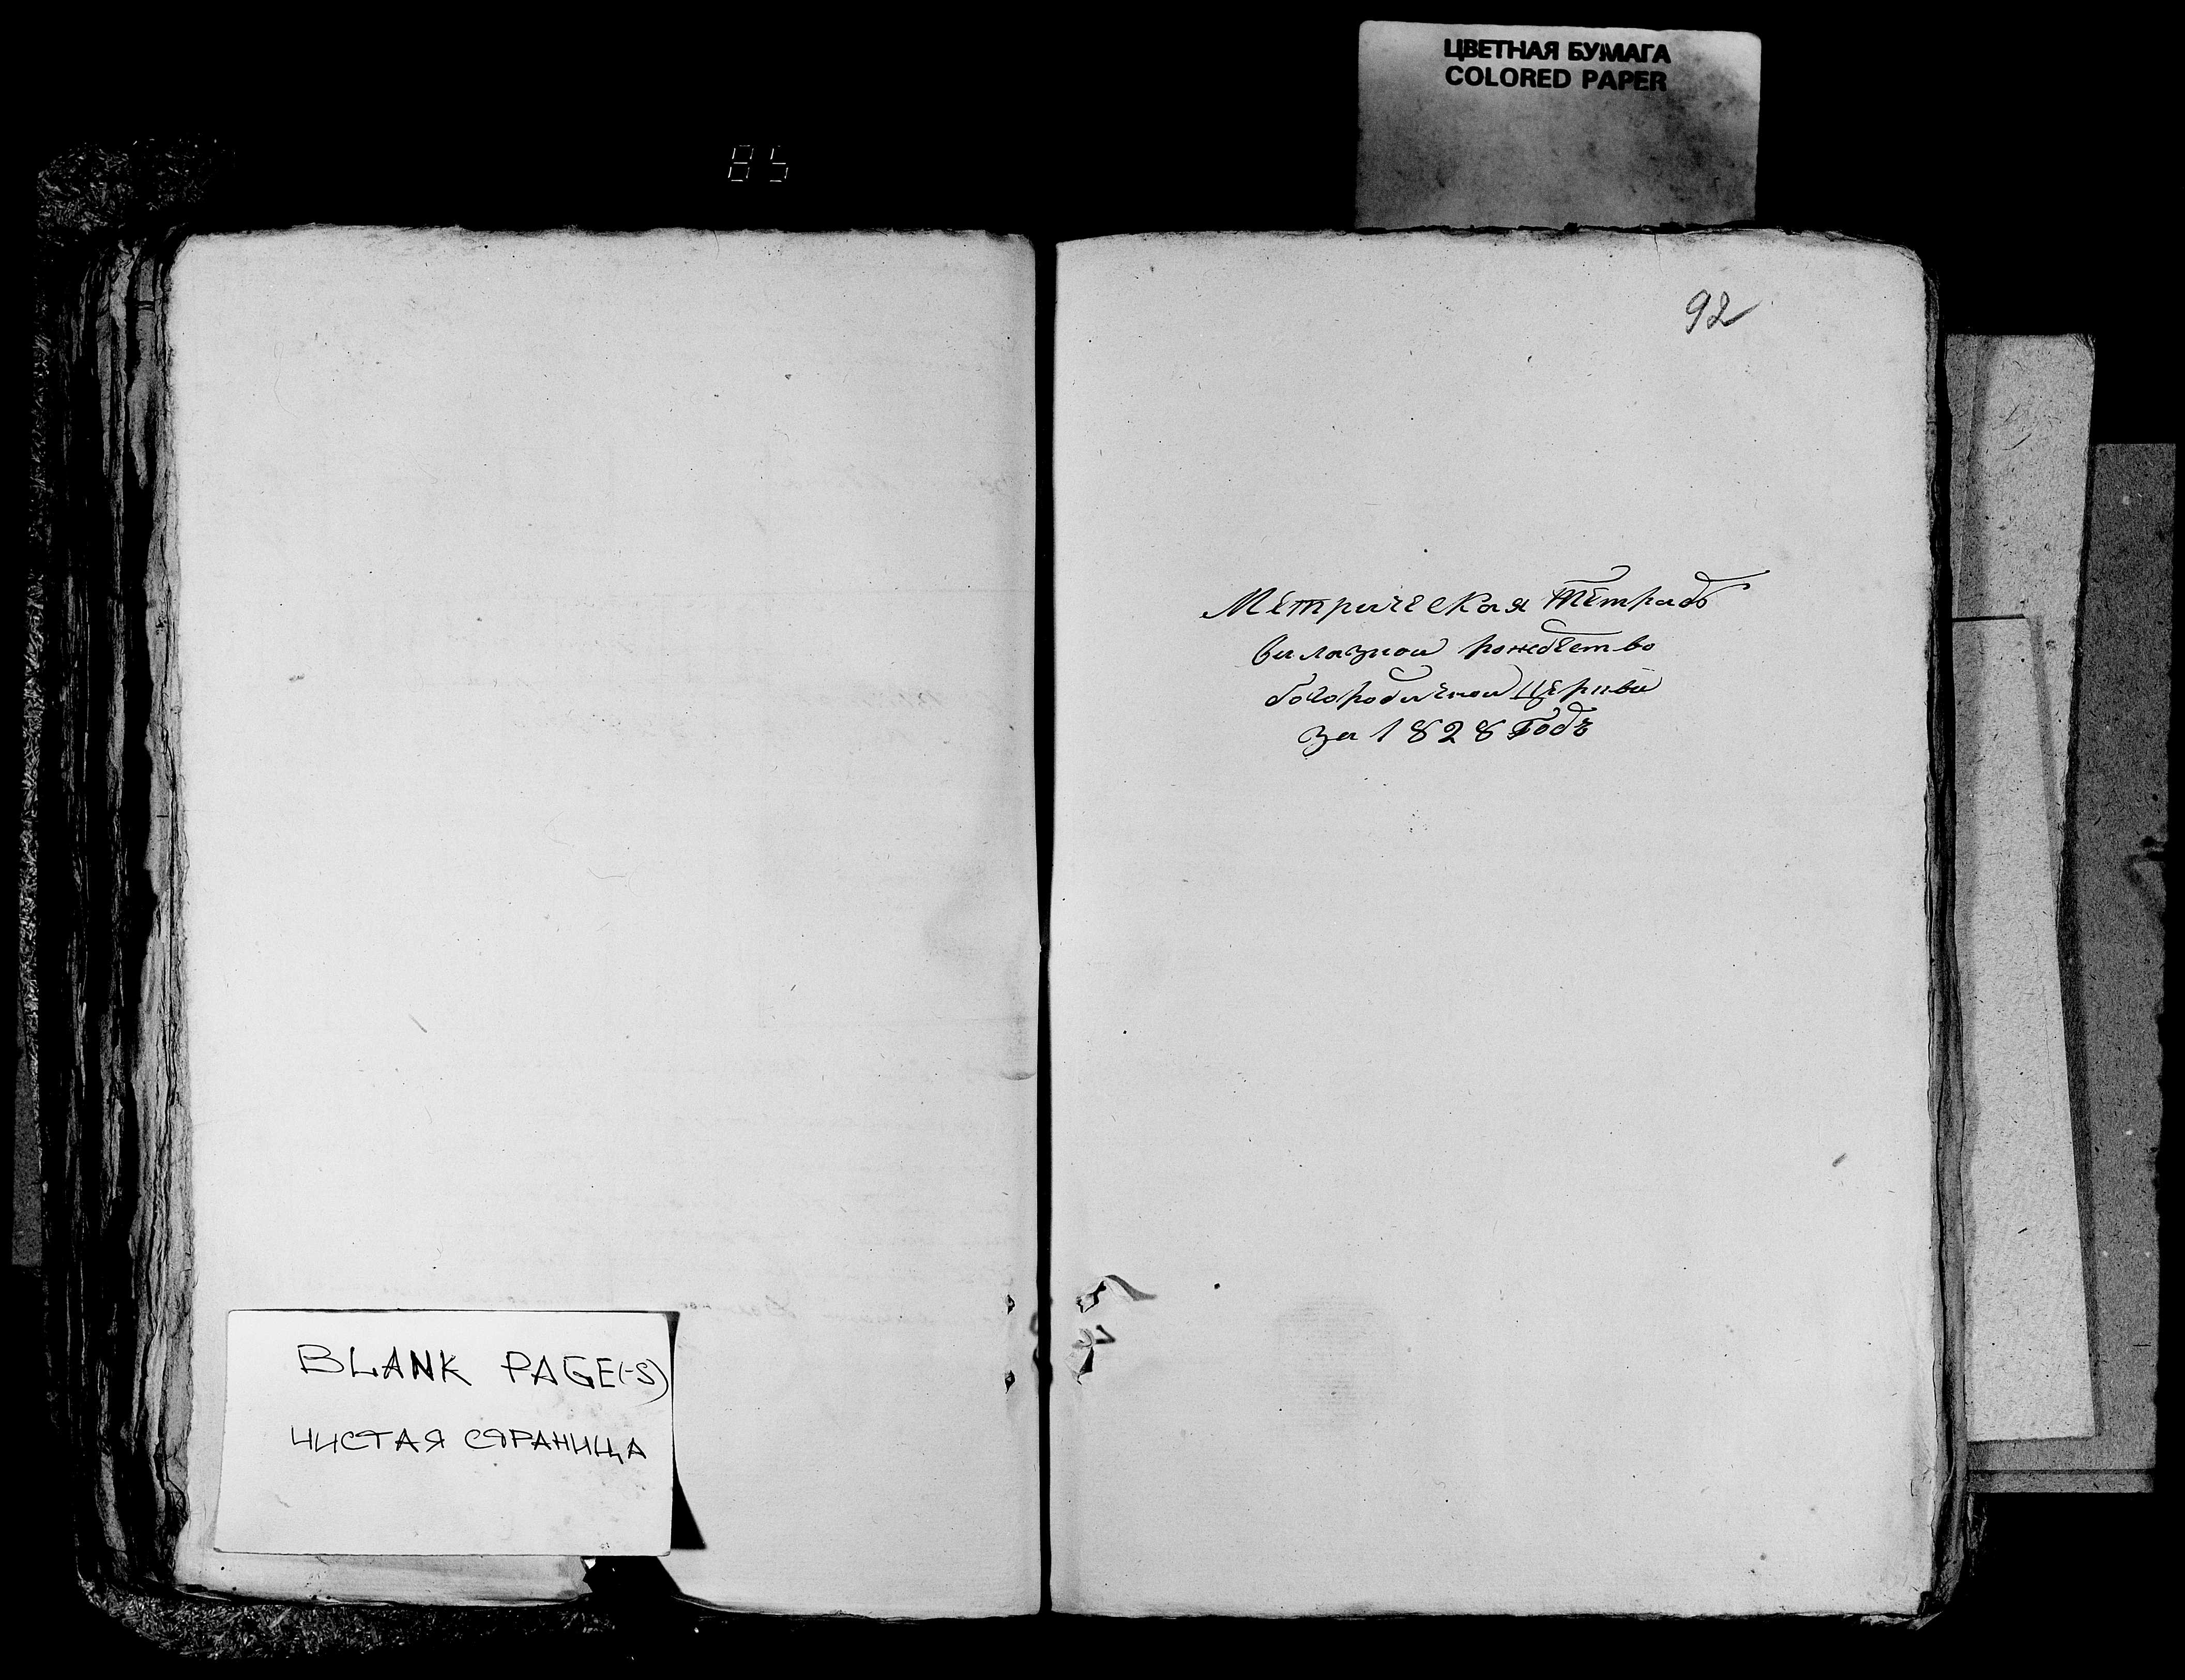 ЦВЕТНАЯ БУМАГА
COLORED PAPER
85
92
Метрическая тетрадь
вилазкои рождество
богородичнои Церкви
за 1828 Годъ
BLANK PAGE(-S)
ЧИСТАЯ СТРАНИЦА